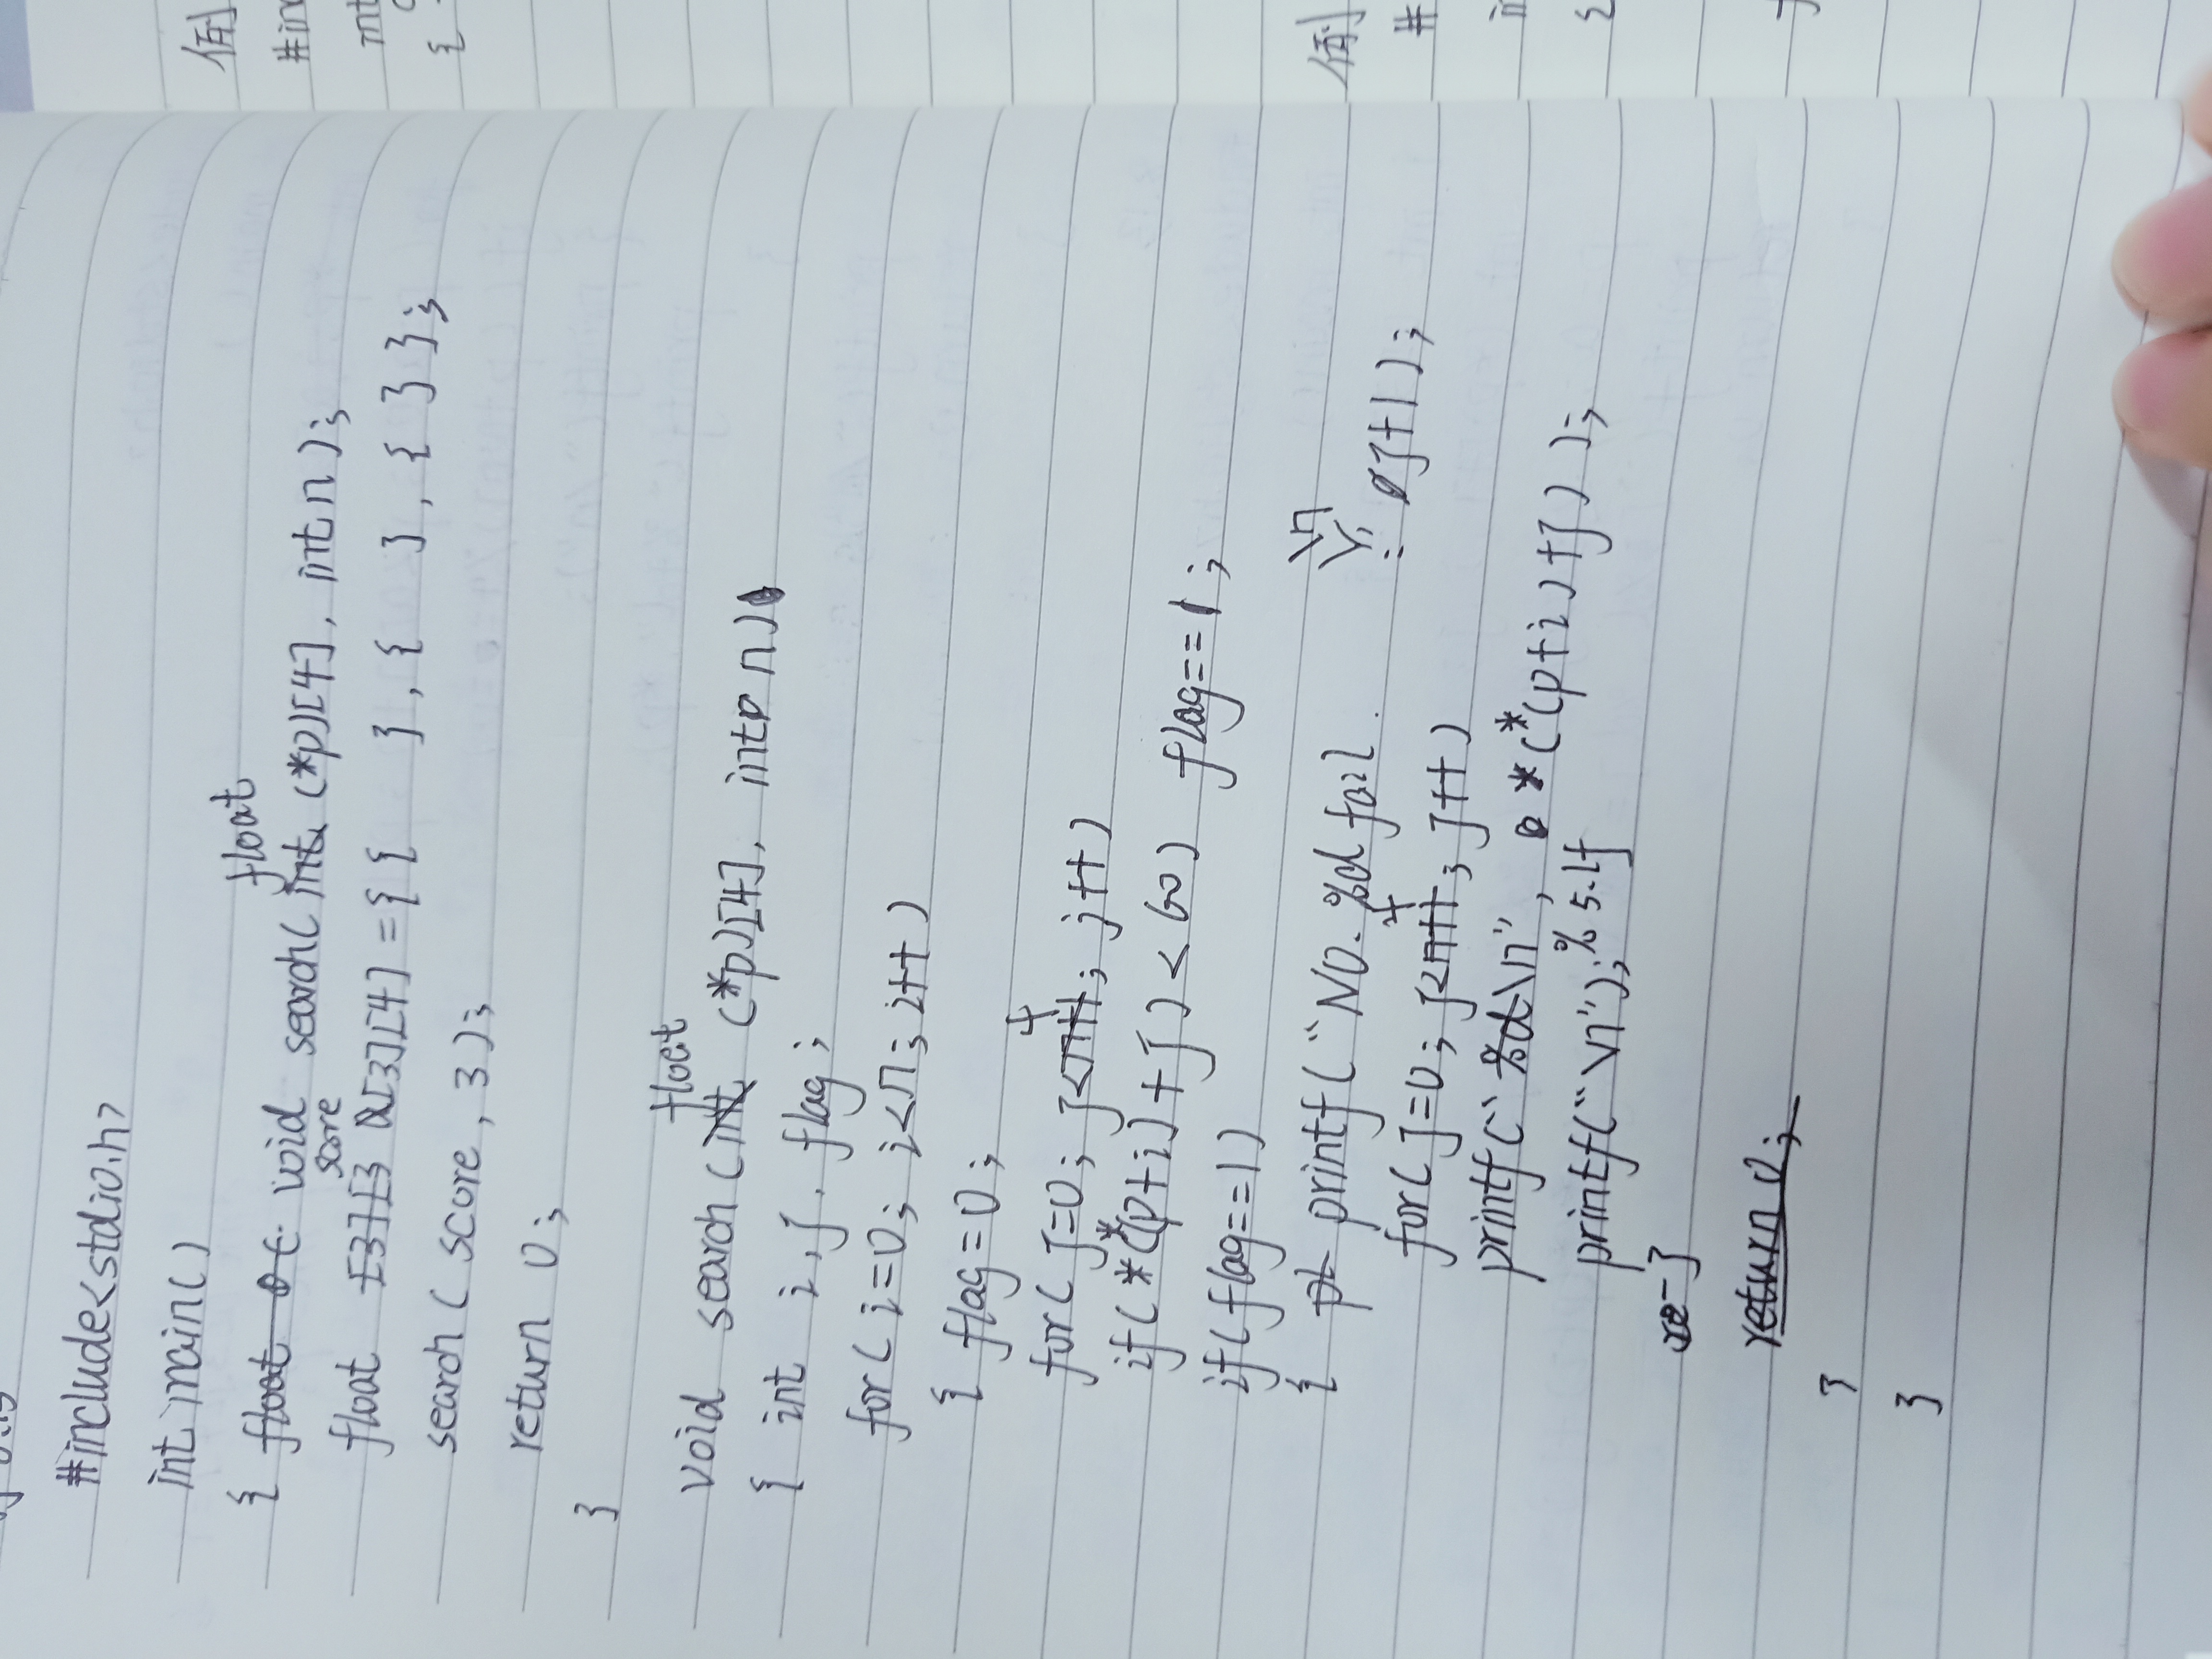 #include<stdio.h>
int main()
{ void search(float (*p)[4], int n);
float score[3][4]={{ },{ },{ }};
search(score,3);
return 0;
}
void search(float (*p)[4], int n)
{ int i,j,flag;
for(i=0;i<n;i++)
{ flag=0;
for(j=0;j<4;j++)
if(*(*(p+i)+j)<60) flag==1;
if(flag==1)
{ printf("NO.%d fail.\n", j+1);
for(j=0;j<4;j++)
printf("%5.1f", *(*(p+i)+j));
printf("\n");
}
}
}
例
#in
int
{
例
#
i
{
f